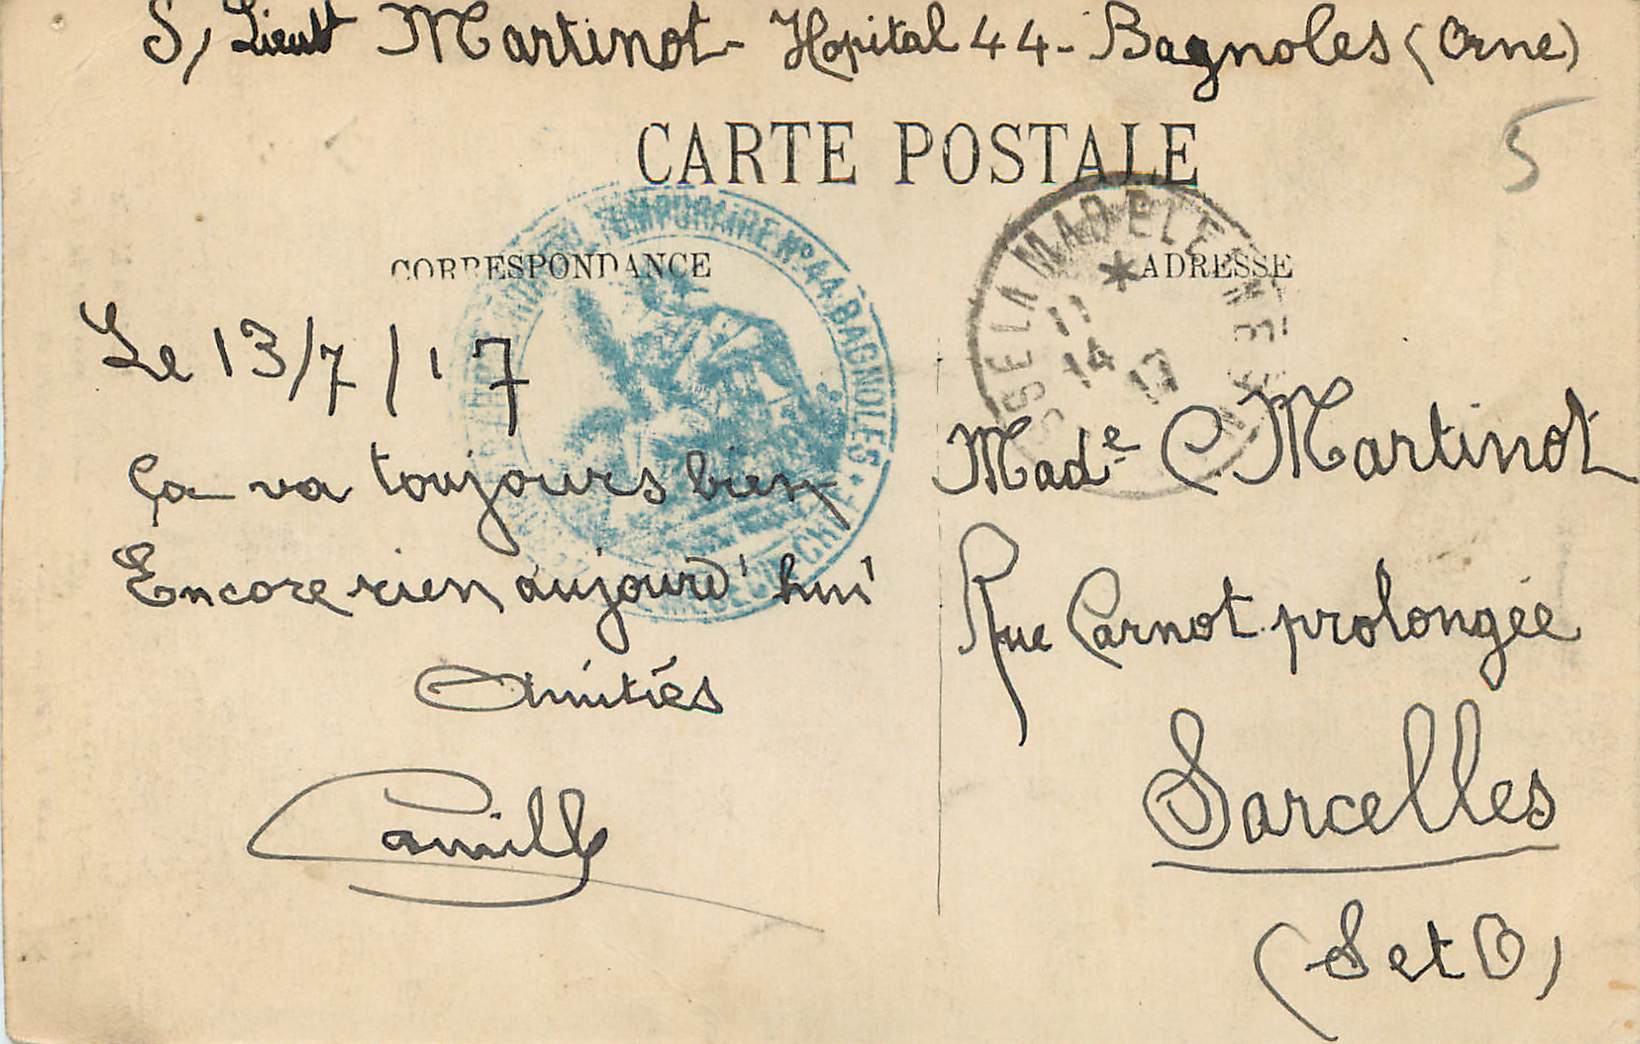 S/ Lieut Martinot - Hopital 44 - Bagnoles (Orne)
CARTE POSTALE
5
CORRESPONDANCE
ADRESSE
TEMPORAIRE N° 44 BAGNOLES
LA MADELEINE
11
14
17
Le 13/7/17
Ça va toujours bien
Encore rien aujourd'hui
Amitiés
Camille
Made C Martinot
Rue Carnot prolongée
Sarcelles
(S et O)